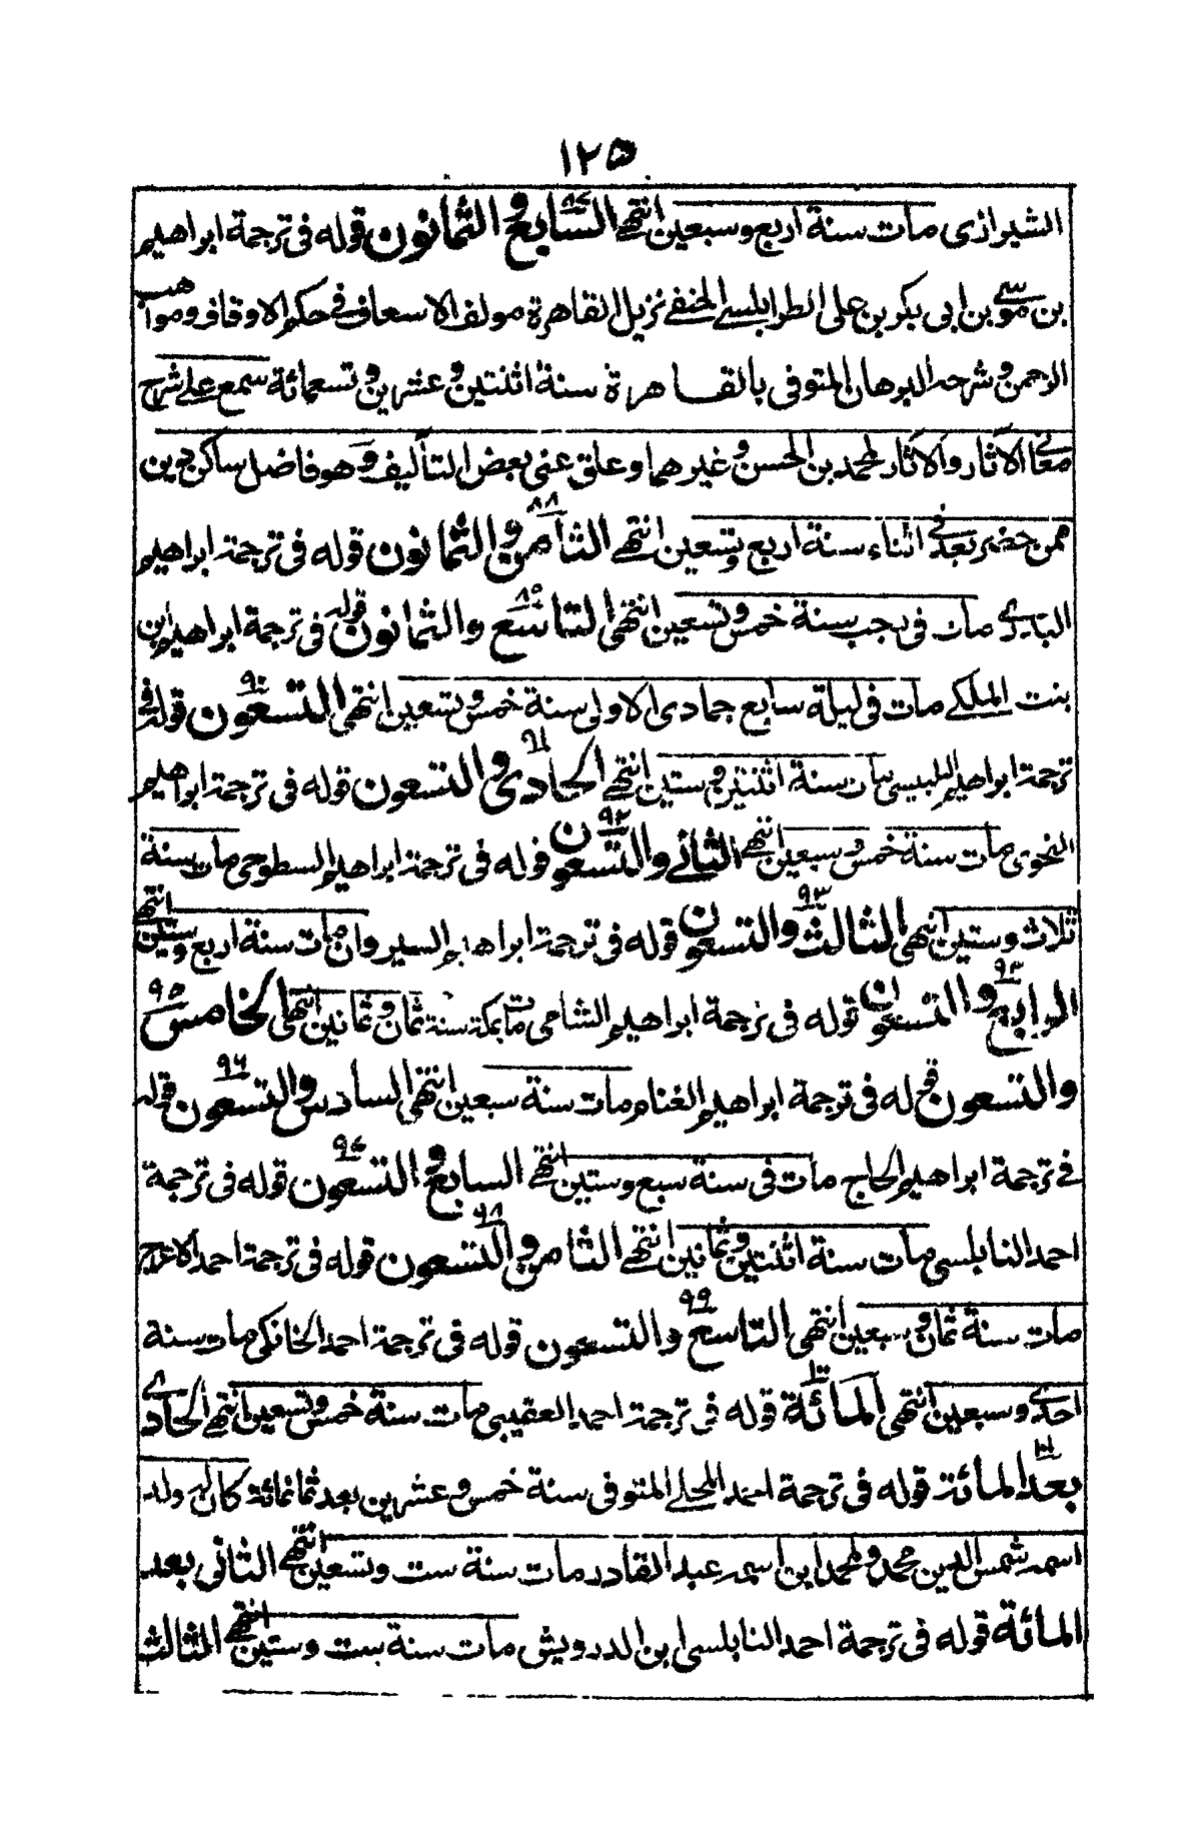 ١٢٥
الشيرازى مات سنة اربع وسبعين انتهى السابع والثمانون قوله فى ترجمة ابراهيم
بن موسى بن ابى بكر بن على الطرابلسى الحنفى نزيل القاهرة مولف الاسعاف فى حكم الاوقاف ومواهب
الرحمن وشرحه البرهان المتوفى بالقاهرة سنة اثنتين وعشرين وتسعمائة سمع على شرح
معانى الآثار والآثار لمحمد بن الحسن وغيرهما وعلق عنى بعض التأليف وهو فاضل ساكن دين
ممن حضر بعد فى اثناء سنة اربع وتسعين انتهى الثامن والثمانون ٨٨ قوله فى ترجمة ابراهيم
مات فى رجب سنة خمس وتسعين انتهى التاسع والثمانون قوله فى ترجمة ابراهيم ابن
بنت الملكى مات فى ليلة سابع جمادى الاولى سنة خمس وتسعين انتهى التسعون ٩٠ قوله فى
ترجمة ابراهيم البلبيسى مات سنة اثنتين وستين انتهى الحادى والتسعون ٩١ قوله فى ترجمة ابراهيم
النحوى مات سنة خمس وسبعين انتهى الثانى والتسعون ٩٢ قوله فى ترجمة ابراهيم السطوحى مات سنة
ثلاث وستين انتهى الثالث والتسعون ٩٣ قوله فى ترجمة ابراهيم السيروان مات سنة اربع وستين انتهى
الرابع والتسعون قوله فى ترجمة ابراهيم الشامى مات بمكة سنة ثمان وثمانين انتهى الخامس ٩٥
والتسعون قوله فى ترجمة ابراهيم الغنام مات سنة سبعين انتهى السادس والتسعون ٩٦ قوله
فى ترجمة ابراهيم الحاج مات فى سنة سبع وستين انتهى السابع والتسعون قوله فى ترجمة
احمد النابلسى مات سنة اثنتين وثمانين انتهى الثامن والتسعون ٩٨ قوله فى ترجمة احمد الاعرج
مات سنة ثمان وسبعين انتهى التاسع والتسعون ٩٩ قوله فى ترجمة احمد الخانكى مات سنة
احدى وسبعين انتهى المائة ١٠٠ قوله فى ترجمة احمد العقيبى مات سنة خمس وتسعين انتهى الحادى
بعد المائة ١٠١ قوله فى ترجمة احمد المحلى المتوفى سنة خمس وعشرين بعد ثمانمائة كان له ولد
اسمه شمس الدين محمد ولمحمد ابن اسمه عبد القادر مات سنة ست وتسعين انتهى الثانى بعد
المائة قوله فى ترجمة احمد النابلسى ابن الدرويش مات سنة ست وستين انتهى الثالث